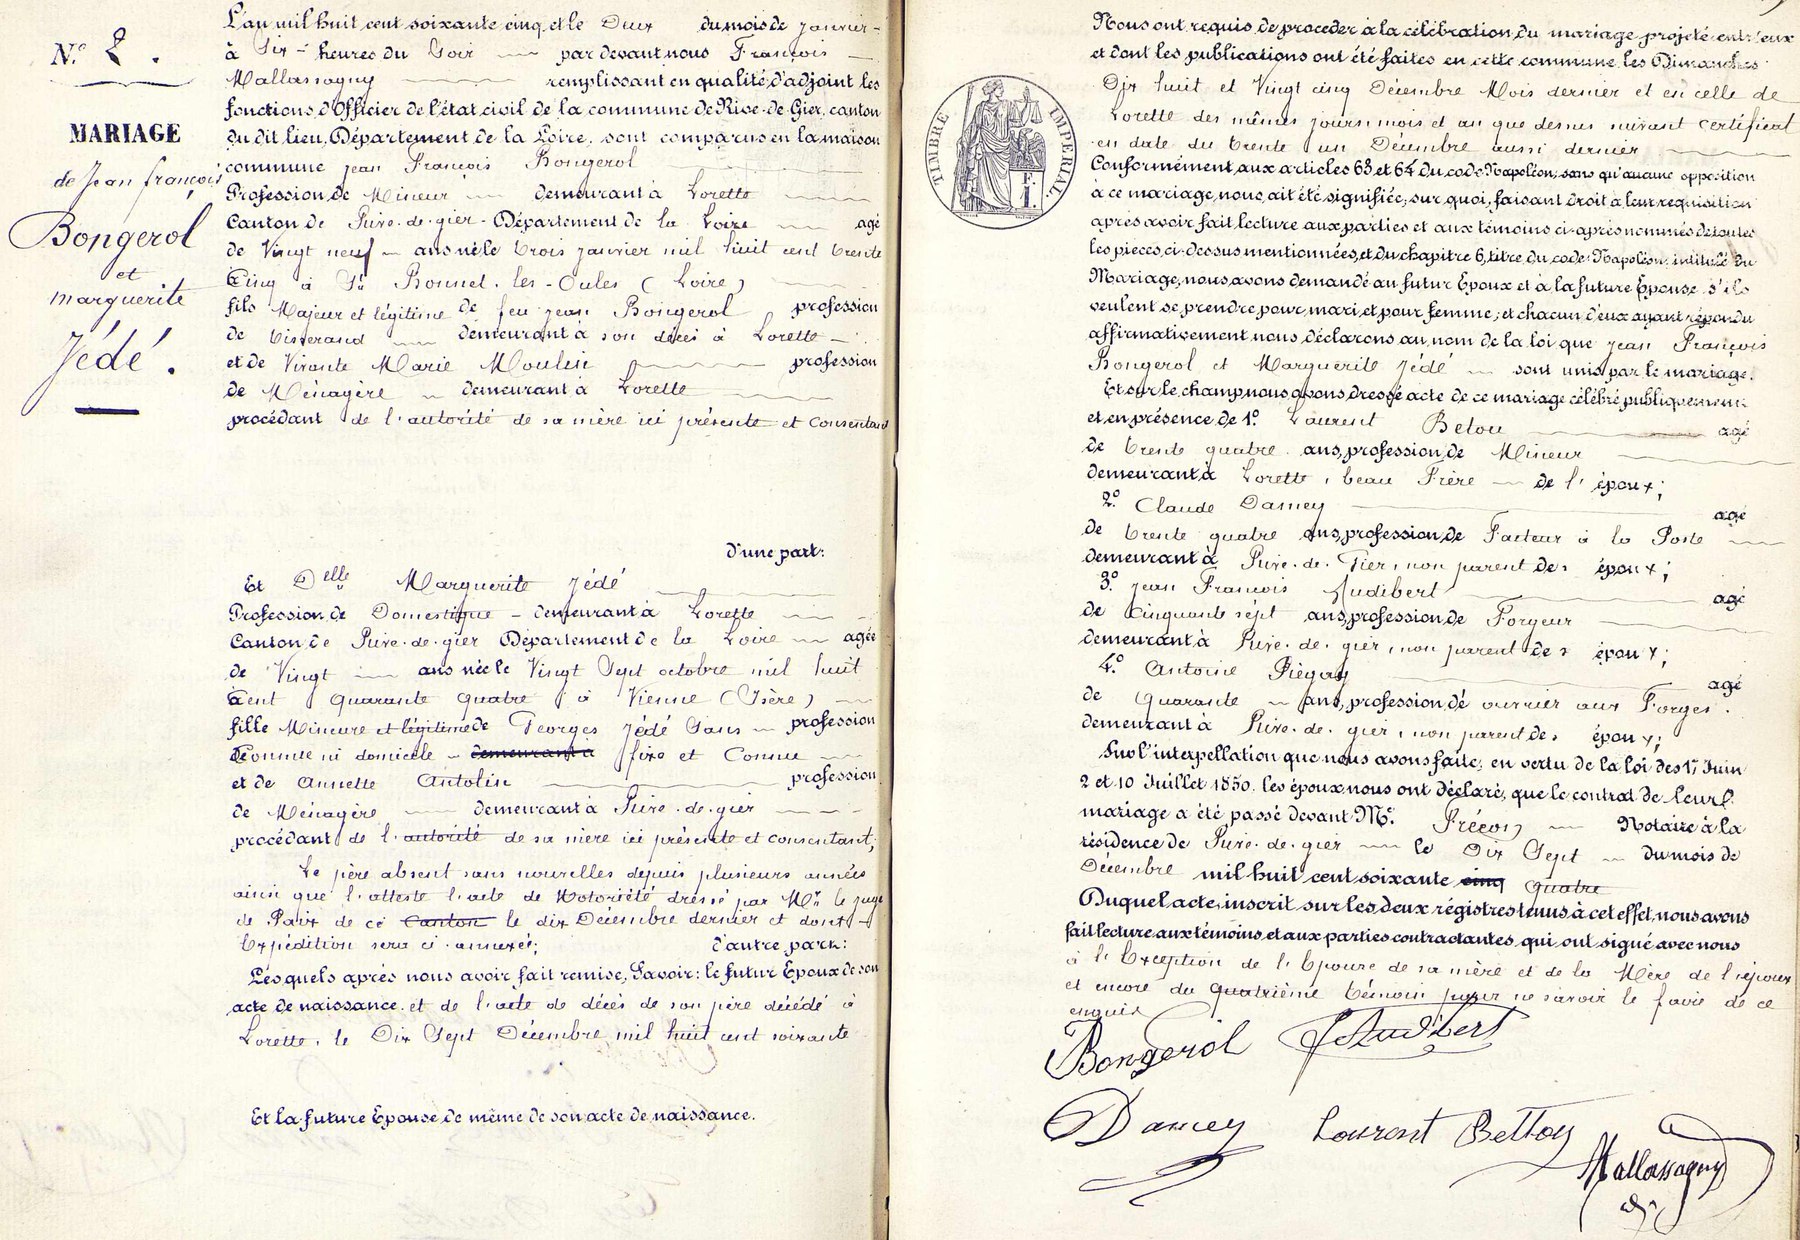 N.º 2.
MARIAGE
de Jean françois
Bongerol
et
marguerite
Jédé.
L'an mil huit cent soixante cinq et le Deux du mois de Janvier
à Six heures du Soir par devant nous François
Mallassagny remplissant en qualité d'adjoint les
fonctions d'Officier de l'état civil de la commune de Rive-de-Gier, canton
du dit lieu, Département de la Loire, sont comparus en la maison
commune jean François Bongerol
Profession de Mineur demeurant à Lorette
Canton de Rive-de-gier Département de la Loire agé
de Vingt neuf ans né le trois janvier mil huit cent trente
Cinq à St Bonnet-les-Oules (Loire)
fils Majeur et légitime de feu jean Bongerol profession
de tisserand demeurant à son décès à Lorette
et de Vivante Marie Moulin profession
de Ménagère demeurant à Lorette
procédant de l'autorité de sa mère ici présente et Consentant
d'une part:
Et Delle Marguerite Jédé
Profession de Domestique demeurant à Lorette
Canton de Rive-de-gier Département de la Loire agée
de Vingt ans née le Vingt Sept octobre mil huit
Cent quarante quatre à Vienne (Isère)
fille Mineure et légitime de Georges Jédé Sans profession
Connue ni domicile demeurant à fixe et Connu
et de Annette Antolin profession
de Ménagère demeurant à Rive-de-gier
procédant de l'autorité de sa mère ici présente et consentant;
Le père absent sans nouvelles depuis plusieurs années
ainsi que l'atteste l'acte de Notoriété dressé par Mr le juge
de Paix de ce Canton le dix Décembre dernier et dont
Expédition sera ci annexée; d'autre part:
Lesquels après nous avoir fait remise, Savoir: le futur Epoux de son
acte de naissance et de l'acte de décès de son père décédé à
Lorette, le Dix Sept Décembre mil huit cent soixante
Et la future Epouse de même de son acte de naissance.
Nous ont requis de procéder à la célébration du mariage projeté entr'eux
et dont les publications ont été faites en cette commune les Dimanches
Dix huit et Vingt cinq Décembre Mois dernier et en celle de
Lorette des mêmes jours, mois et an que dessus suivant certificat
en date du trente un Décembre aussi dernier
TIMBRE IMPERIAL
F.
1.
Conformément aux articles 63 et 64 du code Napoléon, sans qu'aucune opposition
à ce mariage nous ait été signifiée; sur quoi, faisant droit à leur requisition
après avoir fait lecture aux parties et aux témoins ci-après nommés de toutes
les pièces ci-dessus mentionnées, et du chapitre 6, titre du code Napoléon, intitulé du
Mariage, nous avons demandé au futur Epoux et à la future Epouse s'ils
veulent se prendre pour mari et pour femme; et chacun d'eux ayant répondu
affirmativement nous déclarons au nom de la loi que Jean François
Bongerol et Marguerite Jédé sont unis par le mariage.
Et sur le champ nous avons dressé acte de ce mariage célébré publiquement
et en présence de 1.º Laurent Betou agé
de trente quatre ans, profession de Mineur
demeurant à Lorette, beau Frère de l'époux;
2.º Claude Damey agé
de trente quatre ans, profession de Facteur à la Poste
demeurant à Rive-de-Gier, non parent des époux;
3.º Jean François Audibert agé
de Cinquante sept ans, profession de Forgeur
demeurant à Rive-de-gier, non parent des époux;
4.º Antoine Piégay agé
de quarante ans, profession de ouvrier aux Forges.
demeurant à Rive-de-gier, non parent des époux;
Sur l'interpellation que nous avons faite, en vertu de la loi des 17 Juin
2 et 10 Juillet 1850. les époux nous ont déclaré, que le contrat de leur
mariage a été passé devant M.e Frécon Notaire à la
résidence de Rive-de-gier le Dix Sept du mois de
Décembre mil huit cent soixante cinq quatre
Duquel acte, inscrit sur les deux régistres tenus à cet effet, nous avons
fait lecture aux témoins et aux parties contractantes qui ont signé avec nous
à l'Exception de l'Epouse de sa mère et de la Mère de l'époux
et encore du quatrième témoin pour ne savoir le faire de ce
enquis
Bongerol JF Audibert
Damey Laurent Bettou
Mallassagny